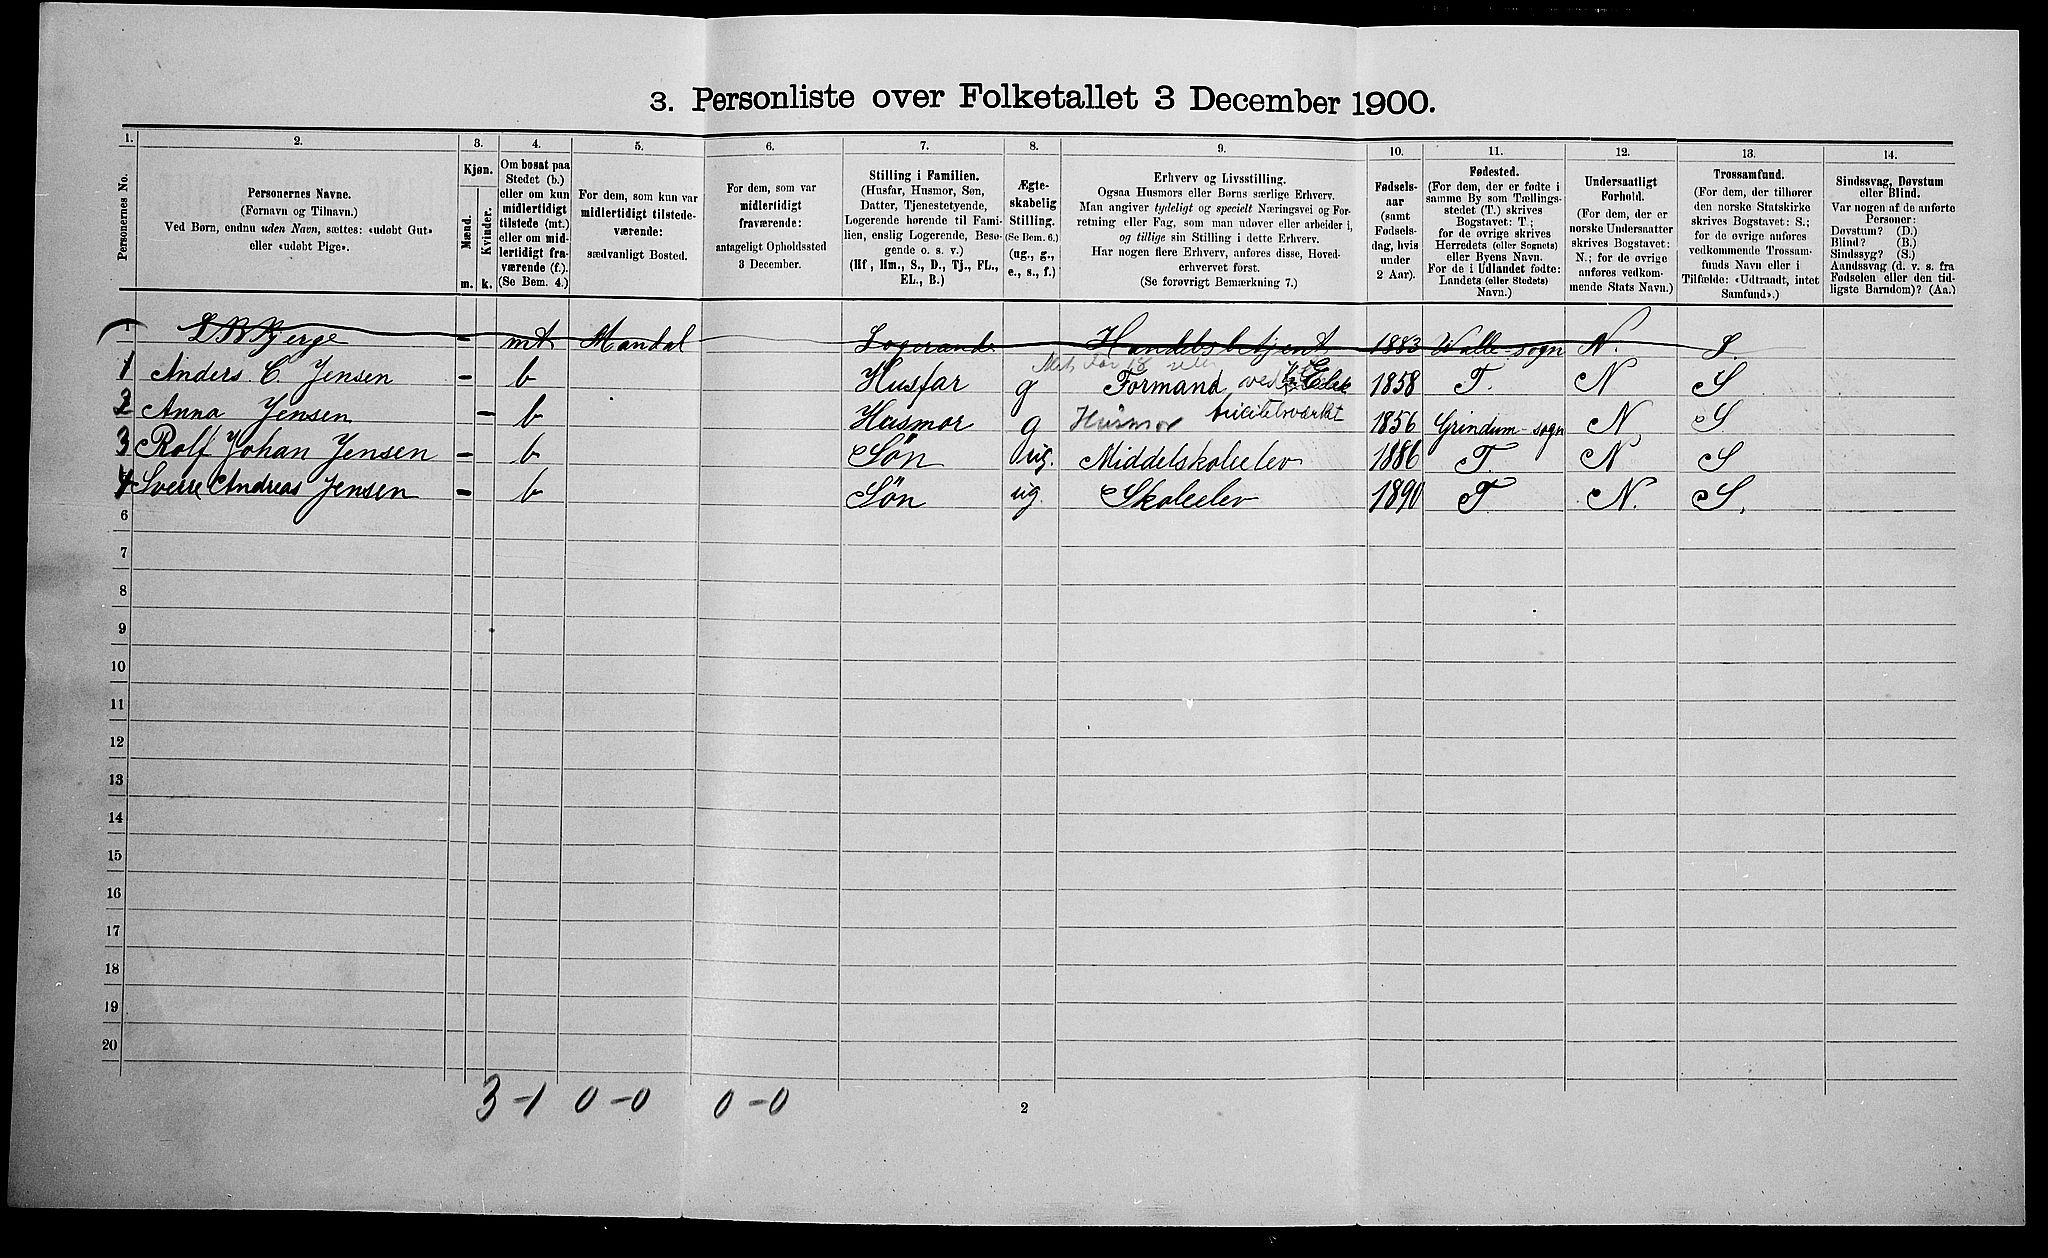 3. Personliste over Folketallet 3 December 1900.
1. 2. 3. 4. 5. 6. 7. 8. 9. 10. 11. 12. 13. 14.
Personernes No.
Personernes Navne.
(Fornavn og Tilnavn.)
Ved Børn, endnu uden Navn, sættes: «udøbt Gut»
eller «udøbt Pige».
Kjøn.
Mænd.
Kvinder.
m. k.
Om bosat paa
Stedet (b.)
eller om kun
midlertidigt
tilstede (mt.)
eller om mid-
lertidigt fra-
værende (f.).
(Se Bem. 4.)
For dem, som kun var
midlertidigt tilstede-
værende:
sædvanligt Bosted.
For dem, som var
midlertidigt
fraværende:
antageligt Opholdssted
3 December.
Stilling i Familien.
(Husfar, Husmor, Søn,
Datter, Tjenestetyende,
Logerende hørende til Fami-
lien, enslig Logerende, Besø-
gende o. s. v.)
(Hf, Hm., S., D., Tj., FL.,
EL., B.)
Ægte-
skabelig
Stilling.
(Se Bem. 6.)
(ug., g.,
e., s., f.)
Erhverv og Livsstilling.
Ogsaa Husmors eller Børns særlige Erhverv.
Man angiver tydeligt og specielt Næringsvei og For-
retning eller Fag, som man udøver eller arbeider i,
og tillige sin Stilling i dette Erhverv.
Har nogen flere Erhverv, anføres disse, Hoved-
erhvervet først.
(Se forøvrigt Bemærkning 7.)
Fødsels-
aar
(samt
Fødsels-
dag, hvis
under
2 Aar).
Fødested.
(For dem, der er fødte i
samme By som Tællings-
stedet (T.) skrives
Bogstavet: T;
for de øvrige skrives
Herredets (eller Sognets)
eller Byens Navn.
For de i Udlandet fødte:
Landets (eller Stedets)
Navn.)
Undersaatligt
Forhold.
(For dem, der er
norske Undersaatter
skrives Bogstavet:
N.; for de øvrige
anføres vedkom-
mende Stats Navn.)
Trossamfund.
(For dem, der tilhører
den norske Statskirke
skrives Bogstavet: S.;
for de øvrige anføres
vedkommende Trossam-
funds Navn eller i
Tilfælde: «Udtraadt, intet
Samfund».)
Sindssvag, Døvstum
eller Blind.
Var nogen af de anførte
Personer:
Døvstum? (D.)
Blind? (B.)
Sindssyg? (S.)
Aandssvag (d. v. s. fra
Fødselen eller den tid-
ligste Barndom)? (Aa.)
1 Bjerge - mt Mandal Logerande Handelsbetjent 1883 Walle-sogn N. S.
1 Anders. C. Jensen - b Husfar g Formand ved Elek 1858 T. N S
tricitetsværket
2 Anna Jensen - b Husmor g Husmor 1856 Grindum-sogn N S
3 Rolf Johan Jensen - b Søn ug. Middelskoleelev 1886 T. N S
4 Sverre Andreas Jensen - b Søn ug. Skoleelev 1890 T. N. S.
6
7
8
9
10
11
12
13
14
15
16
17
18
19
20
3-1 0-0 0-0
2